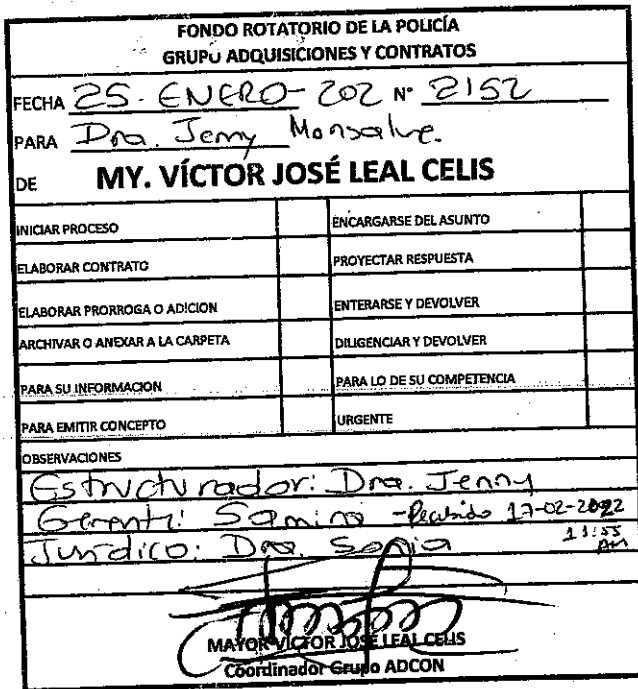 FONDO ROTATORIO DE LA POLICÍA
GRUPO ADQUISICIONES Y CONTRATOS
FECHA 25 - ENERO - 202 N° 2152
PARA Dra. Jenny Monsalve.
DE MY. VÍCTOR JOSÉ LEAL CELIS
INICIAR PROCESO ENCARGARSE DEL ASUNTO
ELABORAR CONTRATO PROYECTAR RESPUESTA
ELABORAR PRORROGA O ADICION ENTERARSE Y DEVOLVER
ARCHIVAR O ANEXAR A LA CARPETA DILIGENCIAR Y DEVOLVER
PARA SU INFORMACION PARA LO DE SU COMPETENCIA
PARA EMITIR CONCEPTO URGENTE
OBSERVACIONES
Estructurador: Dra. Jenny
Gerente: Samira - Recibido 17-02-2022
Jurídico: Dra. Sonia 11:55 AM
MAYOR VICTOR JOSE LEAL CELIS
Coordinador Grupo ADCON